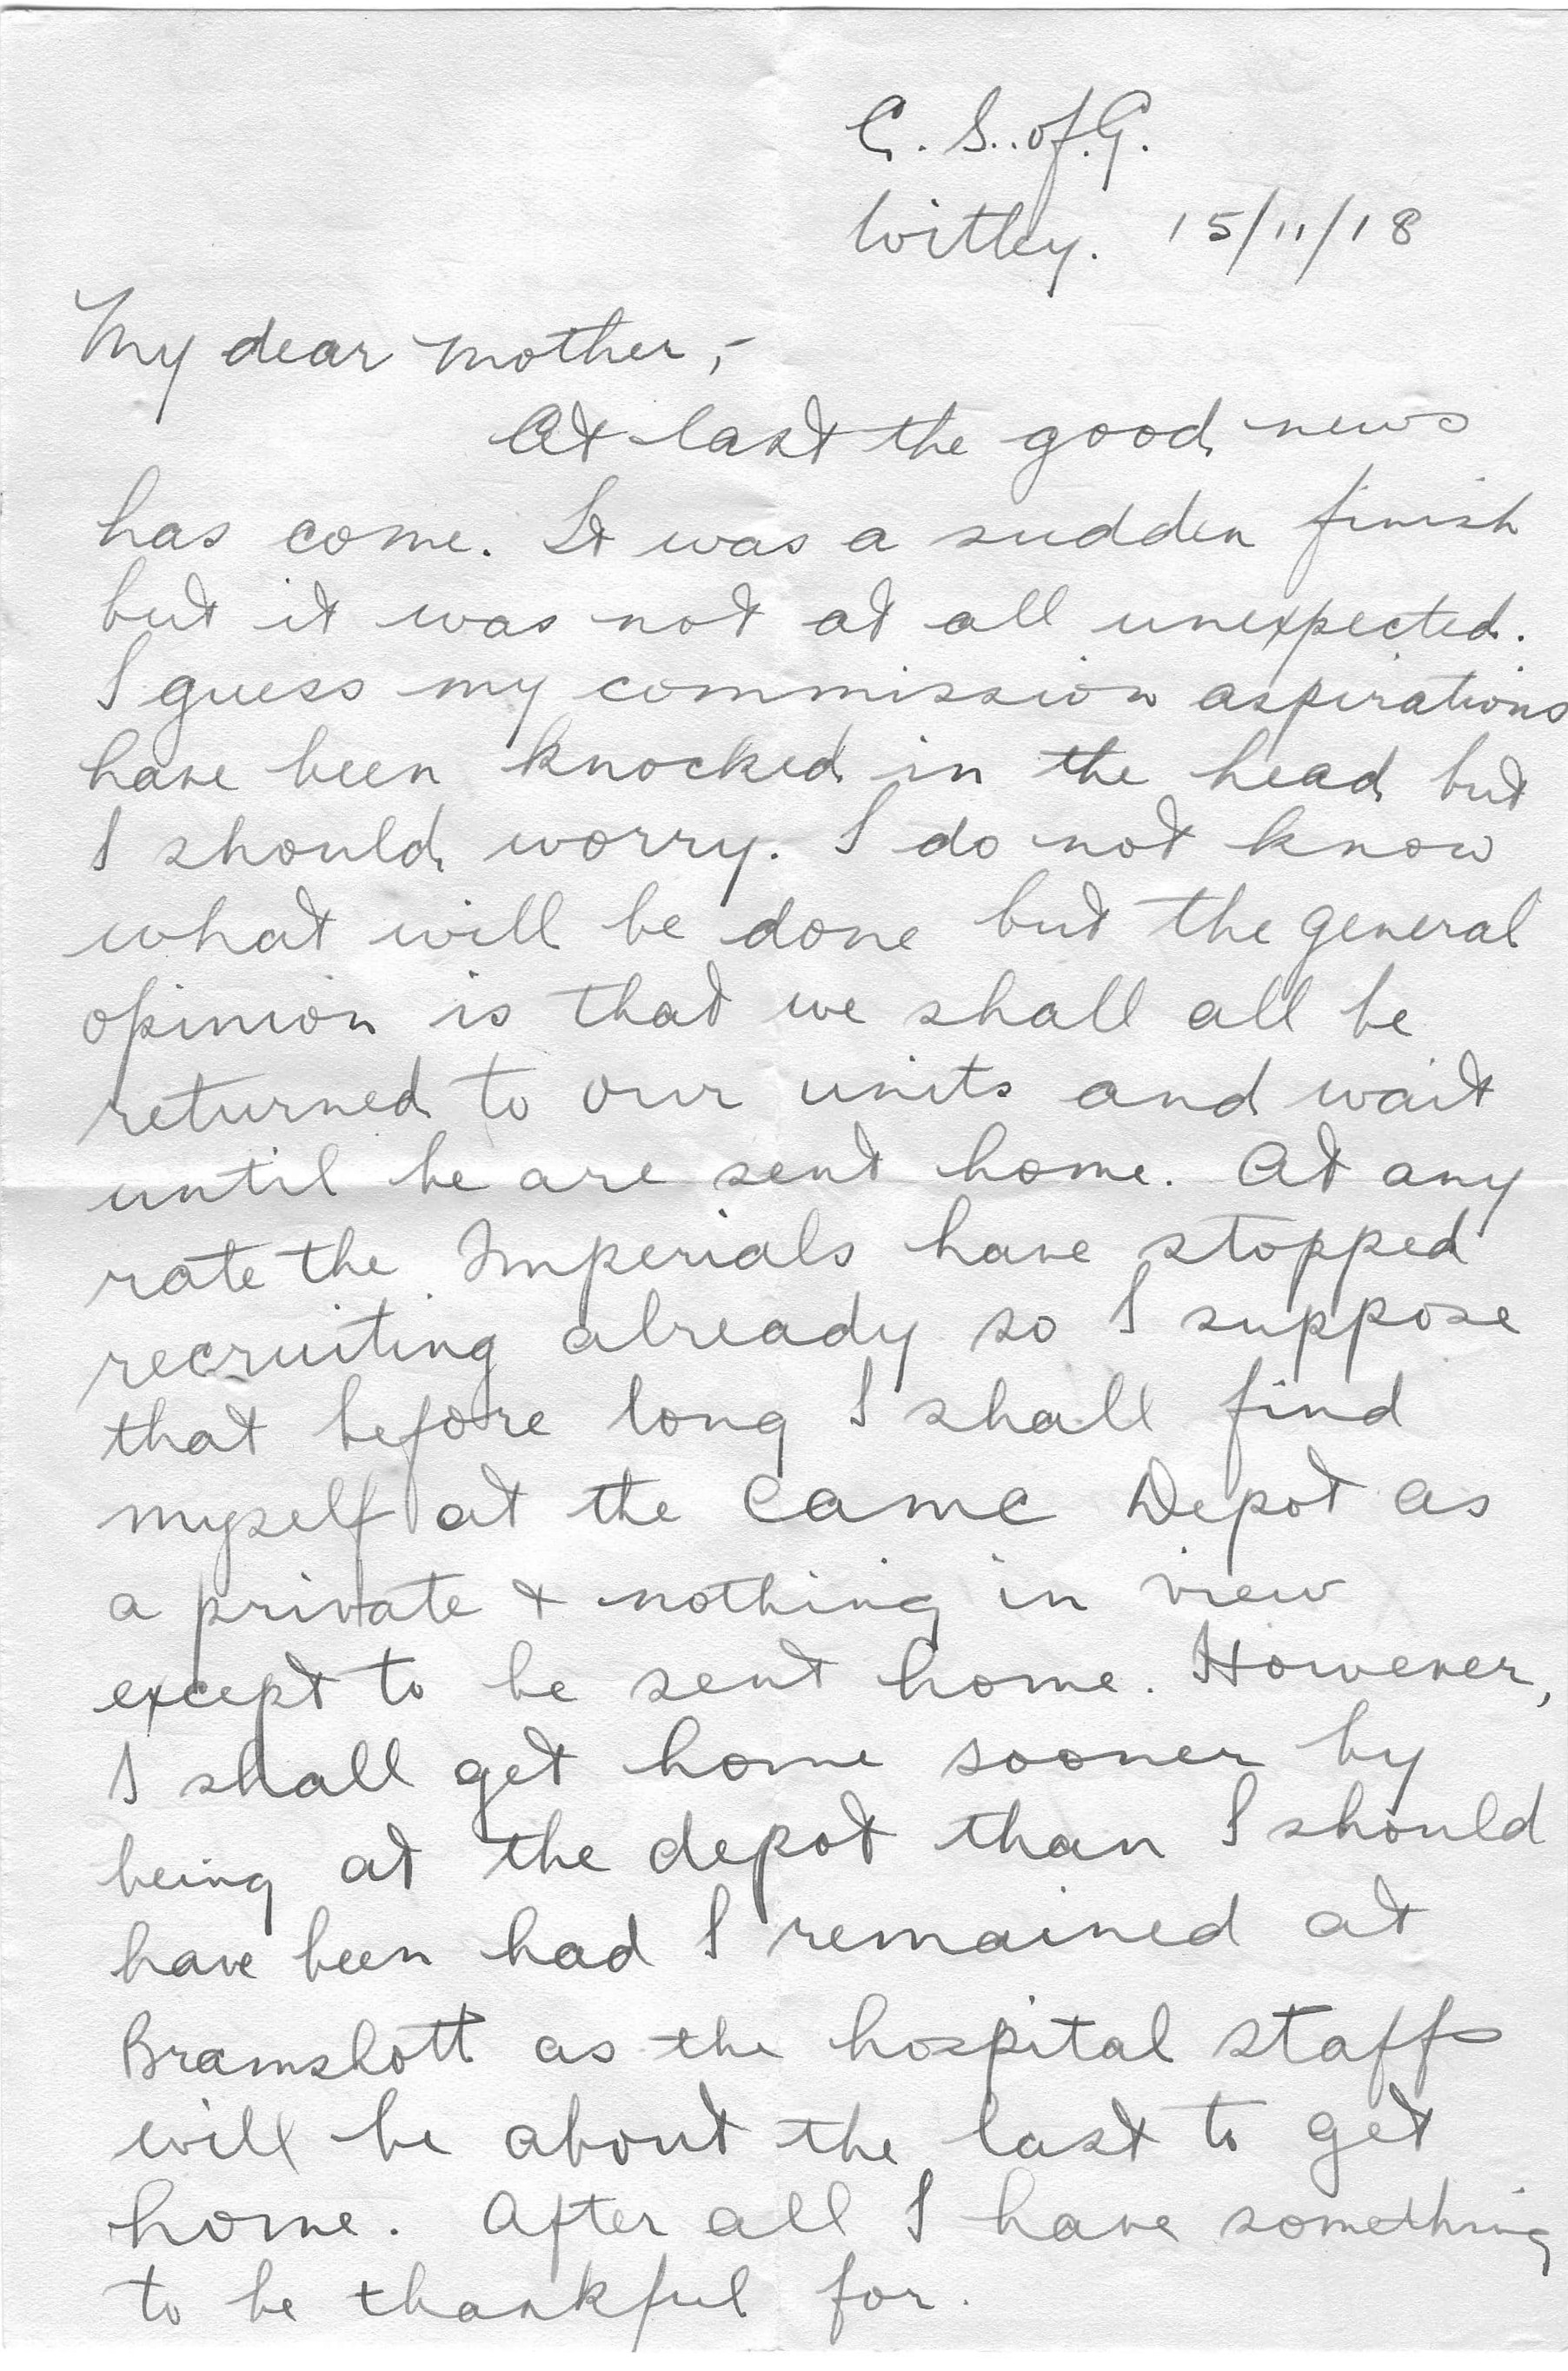 C. S. of. G.
Witley. 15/11/18
My dear mother,-
At last the good news
has come. It was a sudden finish
but it was not at all unexpected.
I guess my commission aspirations
have been knocked in the head but
I should worry. I do not know
what will be done but the general
opinion is that we shall all be
returned to our units and wait
until he are sent home. At any
rate the Imperials have stopped
recruiting already so I suppose
that before long I shall find
myself at the CAMC Depot as
a private & nothing in view
except to be sent home. However,
I shall get home sooner by
being at the depot than I should
have been had I remained at
Bramshott as the hospital staffs
will be about the last to get
home. After all I have something
to be thankful for.